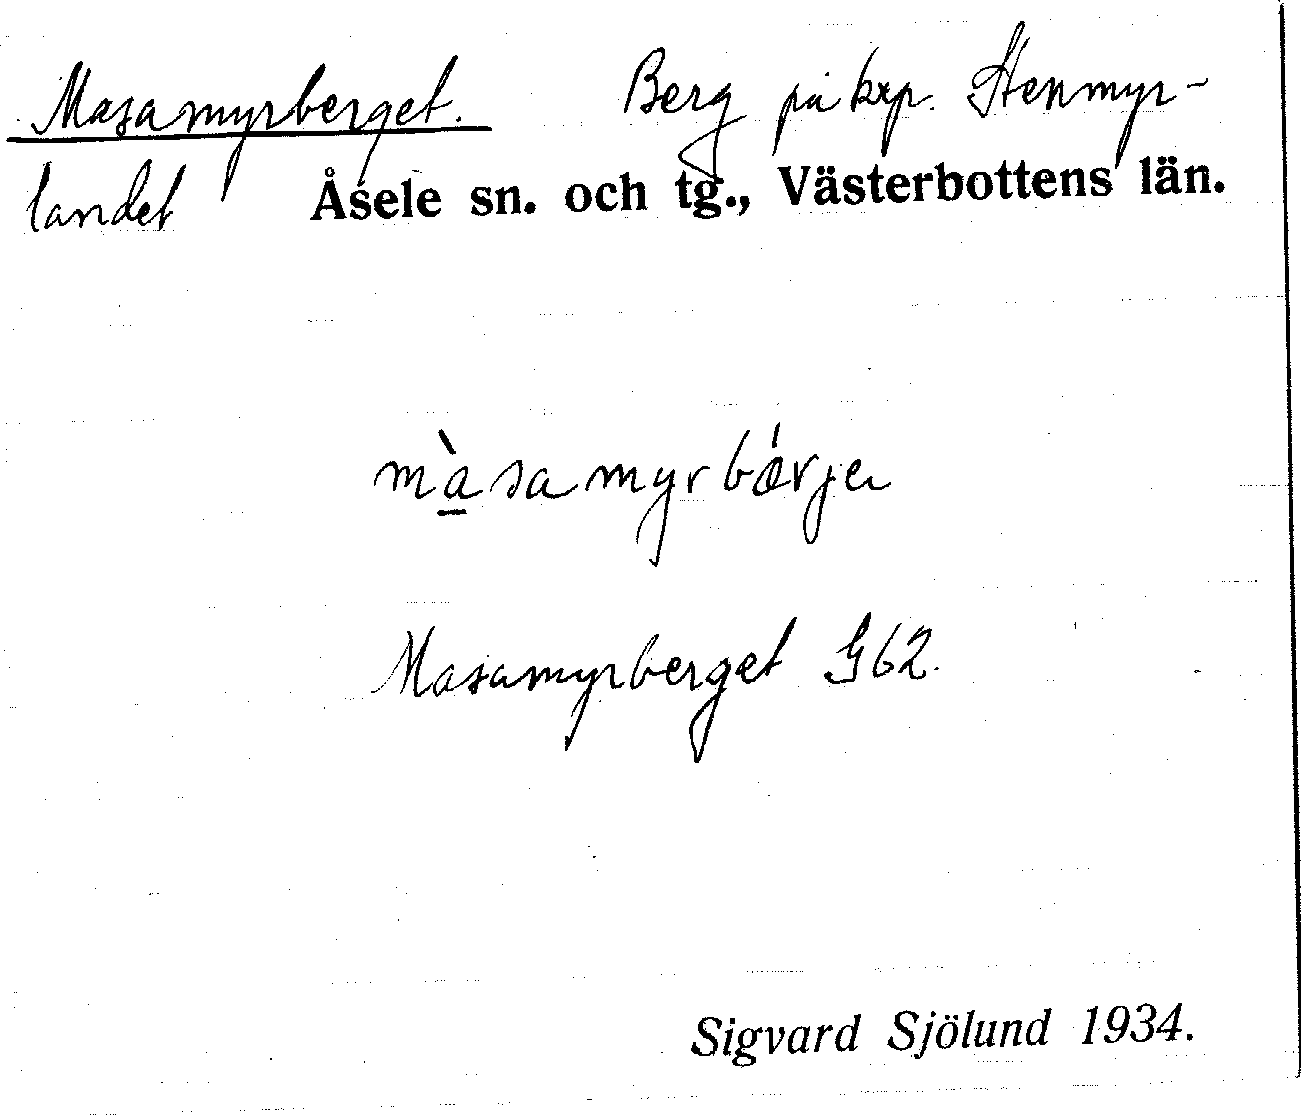 Masamyrberget. Berg på krp. Stenmyr-
landet Åsele sn. och tg., Västerbottens län.
màsamyrbǽrje
Masamyrberget G62.
Sigvard Sjölund 1934.